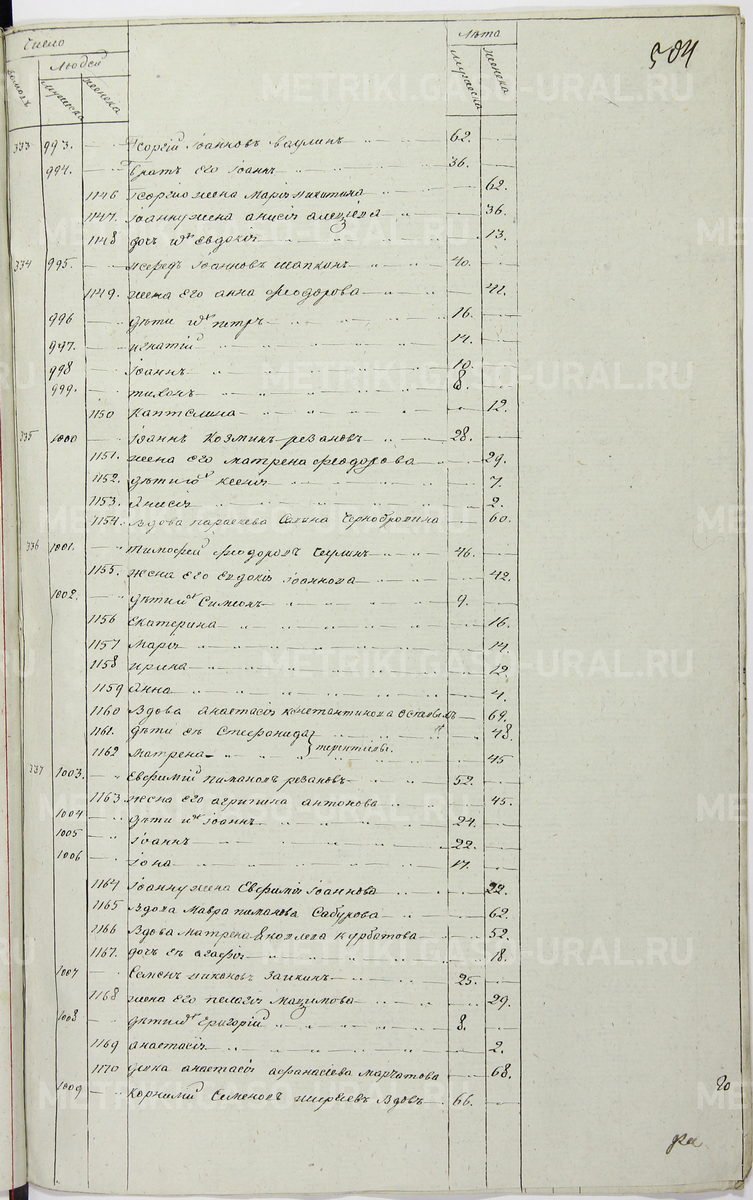 Число
Людей
Лѣта
домовъ
мужеска
женска
мужеска
женска
504
METRIKI.GASO-URAL.RU
333 993. Георгій Іоанновъ Ваулинъ 62.
994. братъ его Іоаннъ 36.
1146 Георгію жена Марія Никитина 62.
1147. Іоанну жена Анисія Алеѯіева 36.
1148 дочь ихъ Евдокія 13.
334 995. Іоанновъ Шапкинъ 40.
1149. жена его Анна Феодорова 41.
996 дѣти ихъ Петръ 16.
997. Игнатій 14.
998 Іоаннъ 10.
999. Тихонъ 8.
1150 Каптелина 12.
335 1000 Іоаннъ Козминъ Резановъ 28.
1151. жена его Матрена Феодорова 29.
1152. дѣти ихъ Ксенія 7.
1153. Анисія 2.
1154. Вдова Параскева Савина Чернобровина 60.
336 1001. Тимофей Феодоровъ 46.
1155. жена его Евдокія Іоаннова 42.
1002. дѣти ихъ Симеонъ 9.
1156 Екатерина 16.
1157 Марія 14.
1158 Ирина 12
1159 Анна 4.
1160 Вдова Анастасія Константинова 69.
1161. дѣти ея Стефанида 48.
1162 Матрена 45
337 1003. Евфимій Пимановъ Резановъ 52.
1163 жена его Агрипина Антонова 45.
1004 дѣти ихъ Іоаннъ 24.
1005 Іоаннъ 22.
1006 Іона 17.
1164 Іоанну жена Евфимія Іоаннова 22.
1165 Вдова Мавра Пиманова Сабурова 62.
1166 Вдова Матрена Яковлева Курбатова 52.
1167. дочь ея Агафія 18.
1007 Семенъ Никоновъ Заикинъ 25.
1168 жена его Пелагія Маѯимова 29.
1008 дѣти ихъ Григорій 8.
1169 Анастасія 2.
1170 Анастасія Афанасіева Марчатова 68.
1009 Корнилій Семеновъ Вдовъ 66.